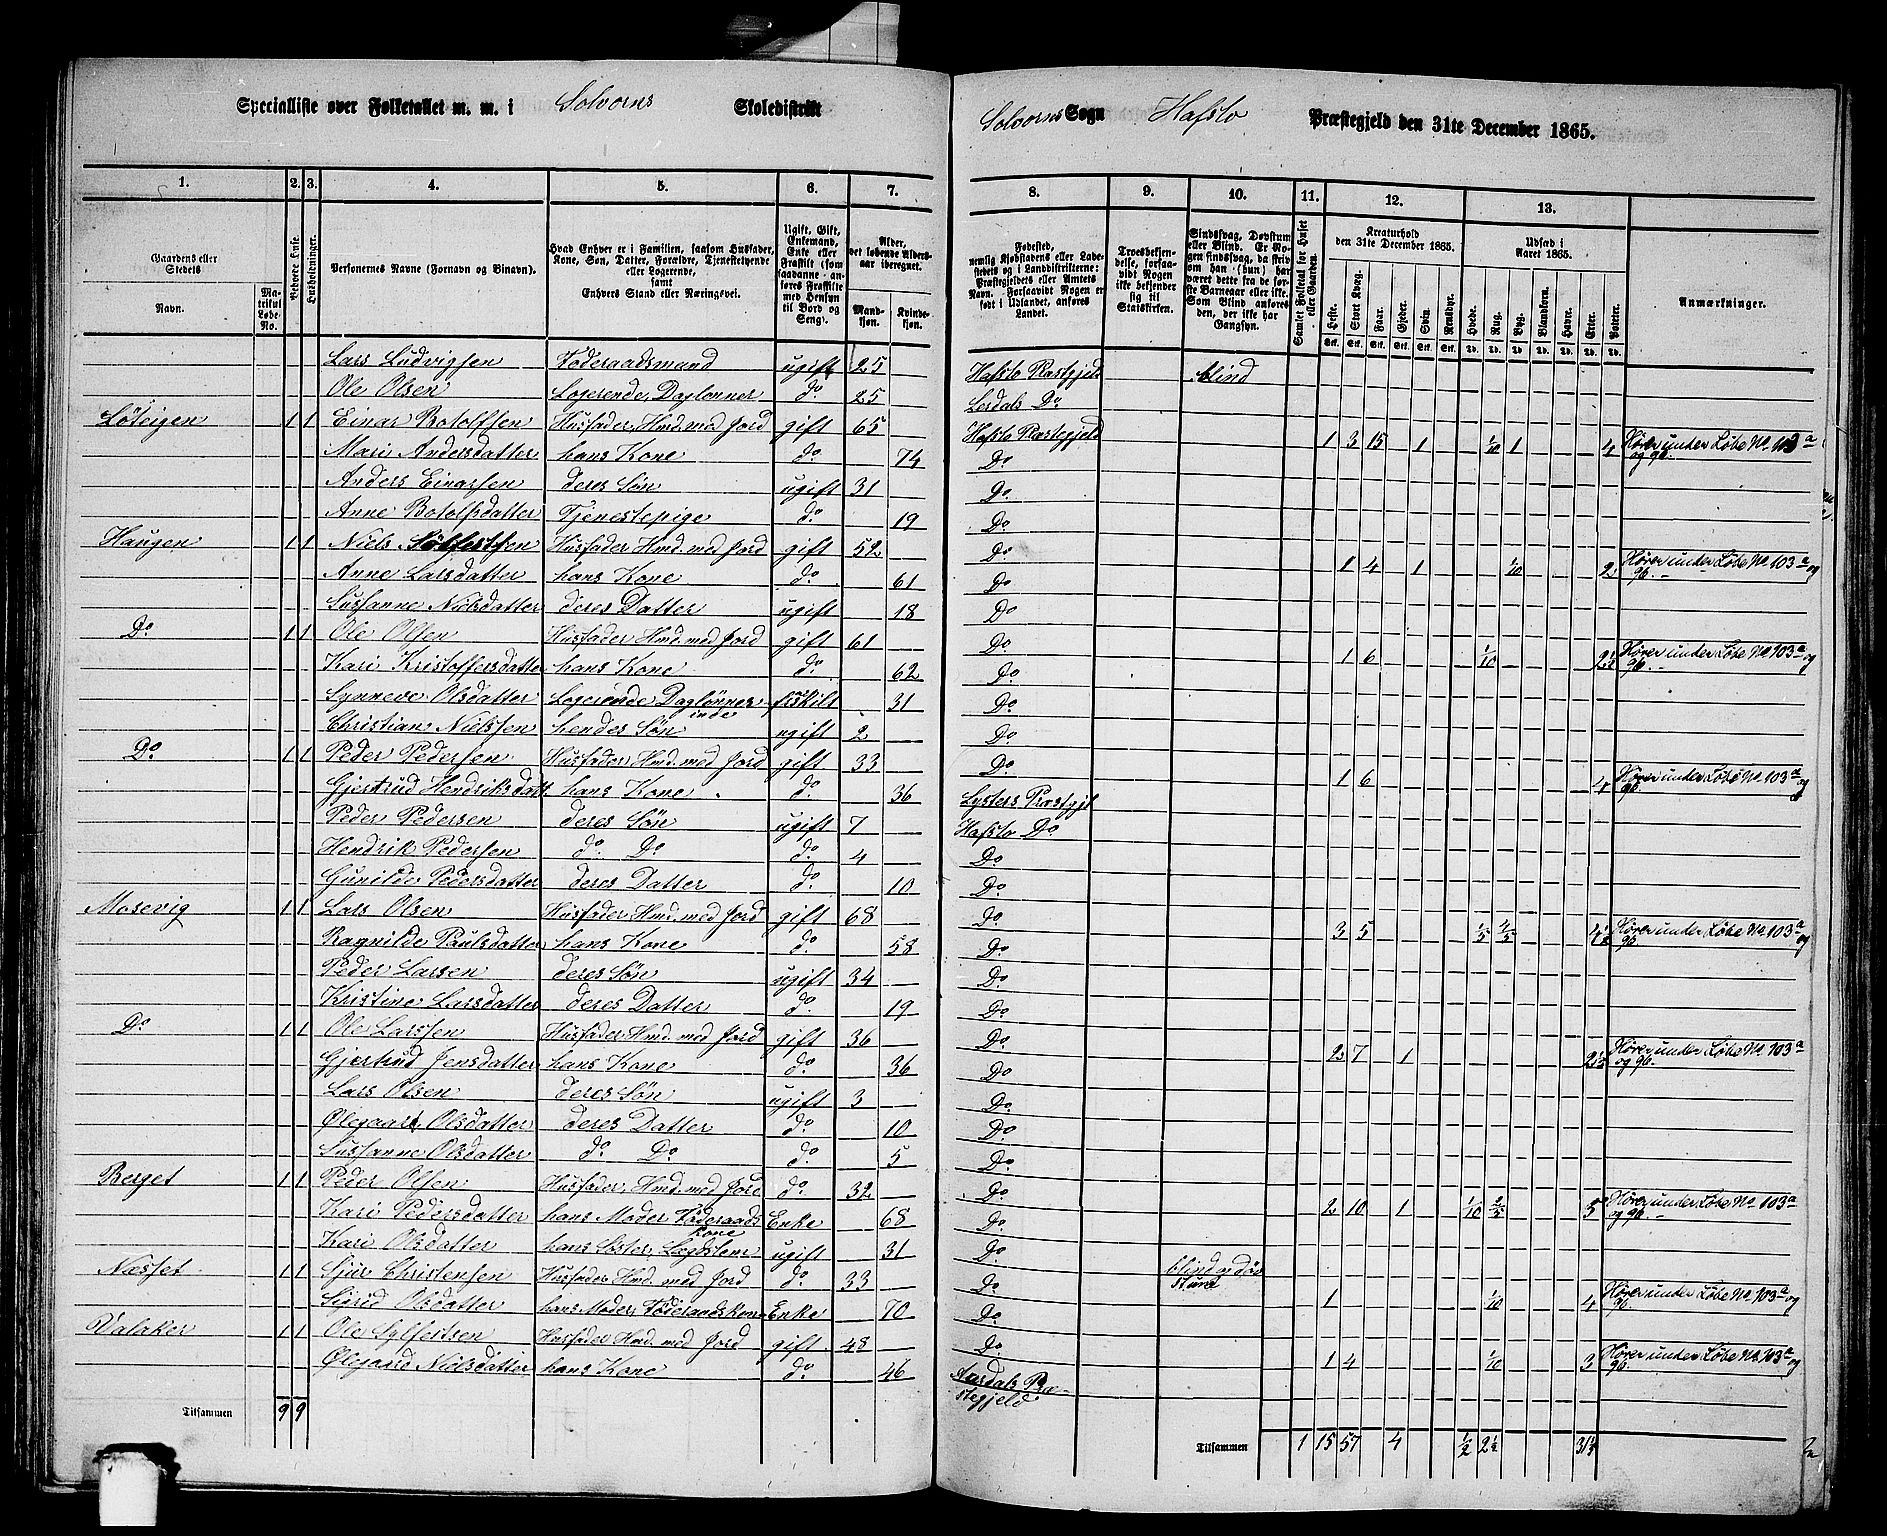 Specialliste over Folketallet m. m. i Solvorns Skoledistrikt
Solvorns Sogn Hafslo Præstegjeld den 31te December 1865.
1. 2. 3. 4. 5. 6. 7. 8. 9. 10. 11. 12. 13.
Gaardens eller Stedets
Navn.
Matrikul Løbe-No.
Bebøede Huse.
Husholdninger.
Personernes Navne (Fornavn og Binavn).
Hvad Enhver er i Familien, saasom Husfader, Kone, Søn, Datter, Forældre, Tjenestetyende eller Logerende, samt Enhvers Stand eller Næringsvei.
Ugift, Gift, Enkemand, Enke eller Fraskilt (som saadanne anføres Fraskilte med Hensyn til Bord og Seng).
Alder, det løbende Aldersaar iberegnet.
Mandkjøn. Kvindekjøn.
Fødested, nemlig Kjøbstadens eller Ladestedets og i Landdistrikterne: Præstegjeldets eller Amtets Navn. Forsaavidt Nogen er født i Udlandet, anføres Landet.
Troesbekjendelse, forsaavidt Nogen ikke bekjender sig til Statskirken.
Sindssvag, Døvstum eller Blind. Er Nogen sindssvag, da skrives om han (hun) har været dette fra de første Barneaar eller ikke. Som Blind anføres den, der ikke har Gangsyn.
Samlet Folketal for Huset eller Gaarden.
Kreaturhold den 31te December 1865.
Heste. Stort Kvæg. Faar. Gjeder. Svin. Rensdyr.
Udsæd i Aaret 1865.
Hvede. Rug. Byg. Blandkorn. Havre. Erter. Poteter.
Anmærkninger.
Lars Ludvigsen Føderaadsmand ugift 25 Hafslo Præstgjeld blind
Ole Olsen Logerende, Daglønner do 25 Lerdals Do
Løteigen 1 1 Einar Botolfsen Husfader, Hmd. med Jord gift 65 Hafslo Præstegjeld 1 3 15 1 1/10 1 4 Hører under Løbe No 103a og 96.
Mari Andersdatter hans Kone do 74 Do
Anders Einarsen deres Søn ugift 31 Do
Anne Botolfsdatter Tjenestepige do 19 Do
Haugen 1 1 Niels Sølfestsen Husfader Hmd. med Jord gift 52 Do 1 4 1 1/10 2 Hører under Løbe No 103a og 96.
Anne Larsdatter hans Kone do 61 Do
Susanne Nielsdatter deres Datter ugift 18 Do
Do 1 1 Ole Olsen Husfader Hmd. med Jord gift 61 Do 1 6 1/10 2½ Hører under Løbe No 103a og 96.
Kari Kristoffersdatter hans Kone do 62 Do
Synneve Olsdatter Logerende Daglønnerinde fraskilt 31 Do
Christian Nielssen hendes Søn ugift 2 Do
Do 1 1 Peder Pedersen Husfader Hmd. med Jord gift 33 Do 1 6 4 Hører under Løbe No 103a og 96.
Gjertrud Hendriksdatt. hans Kone do 36 Lysters Præstgjl
Peder Pedersen deres Søn ugift 7 Hafslo Do
Hendrik Pedersen do Do do 4 Do
Gunilde Pedersdatter deres Datter do 10 Do
Mosevig 1 1 Lars Olsen Husfader Hmd. med Jord gift 68 Do 3 5 1/5 4/5 4½ Hører under Løbe No 103a og 96.
Ragnilde Paulsdatter hans Kone do 58 Do
Peder Larsen deres Søn ugift 34 Do
Kristine Larsdatter deres Datter do 19 Do
Do 1 1 Ole Larssen Husfader Hmd. med Jord gift 36 Do 2 7 1 2½ Hører under Løbe No 103a og 96.
Gjertrud Jensdatter hans Kone do 36 Do
Lars Olsen deres Søn ugift 3 Do
Ølegaard Olsdatter deres Datter do 10 Do
Susanne Olsdatter do Do do 5 Do
Berget 1 1 Peder Olsen Husfader, Hmd. med Jord do 32 Do 2 10 1 1/10 2/5 5 Hører under Løbe No 103a og 96.
Kari Pedersdatter hans Moder Føderaadskone Enke 68 Do
Kari Olsdatter hans Søster, Lægdslem ugift 31 Do blind og døvstum
Næsset 1 1 Sjur Christensen Husfader Hmd. med Jord do 33 Do 1 1/10 4 Hører under Løbe No 103a og 96.
Sigrid Olsdatter hans Moder, Føderaadskone Enke 70 Do
Valaker 1 1 Ole Sylfestsen Husfader Hmd. med Jord gift 48 Do 1 4 1/10 3 Hører under Løbe No 103a og 96.
Ølegaard Nielsdatter hans Kone do 46 Aurdals Præstegjeld
Tilsammen 9 9
Tilsammen 1 15 57 4 ½ 2½ 31½